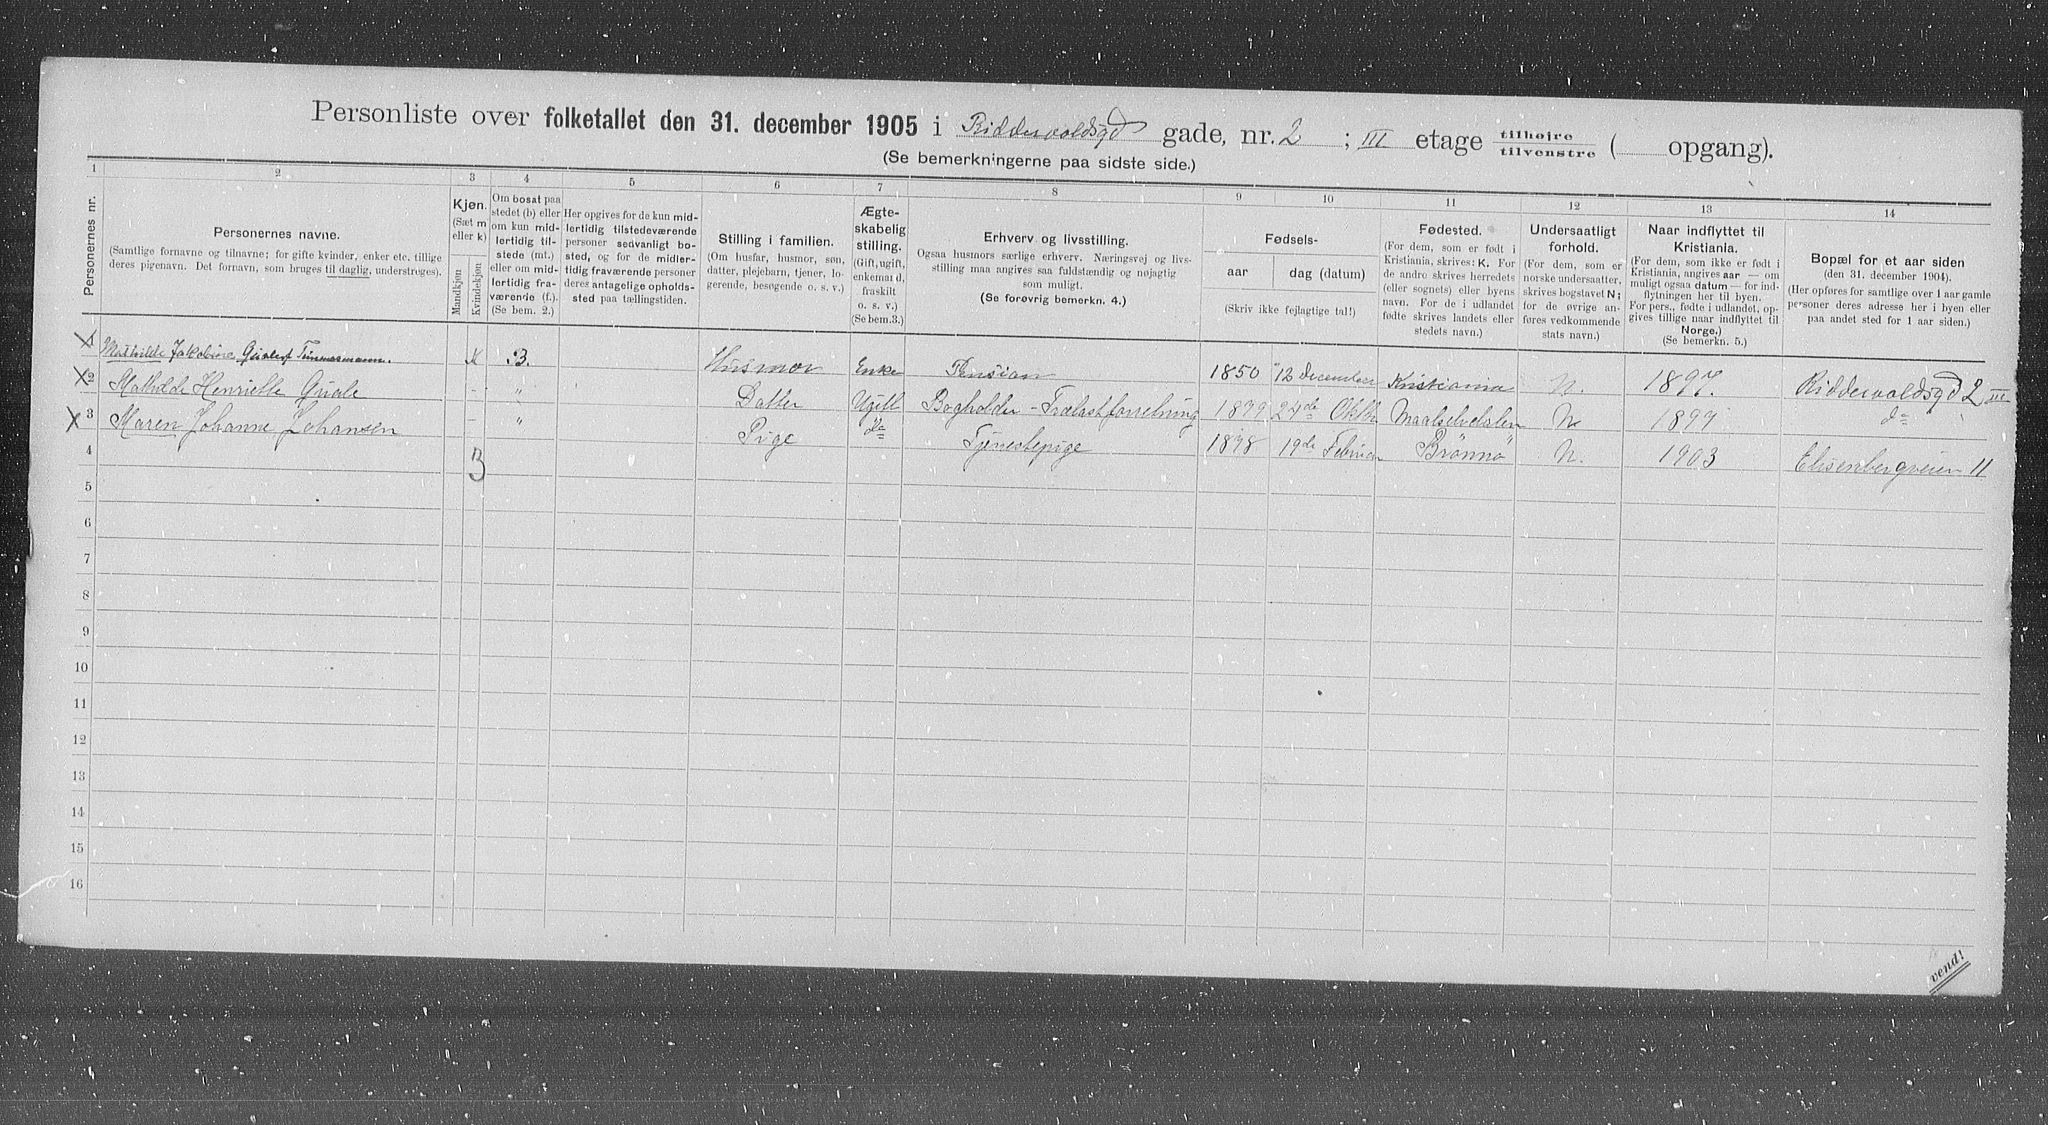 Personliste over folketallet den 31. december 1905 i Riddervoldsgd gade, nr. 2 ; III etage tilhøjre tilvenstre ( opgang).
(Se bemerkningerne paa sidste side.)
1 2 3 4 5 6 7 8 9 10 11 12 13 14
Personernes nr.
Personernes navne.
(Samtlige fornavne og tilnavne; for gifte kvinder, enker etc. tillige
deres pigenavn. Det fornavn, som bruges til daglig, understreges).
Kjøn.
(Sæt m
eller k)
Mandkjøn
Kvindekjøn
Om bosat paa
stedet (b) eller
om kun mid-
lertidig til-
stede (mt.)
eller om mid-
lertidig fra-
værende (f.).
(Se bem. 2.)
Her opgives for de kun mid-
lertidig tilstedeværende
personer sedvanligt bo-
sted, og for de midler-
tidig fraværende personer
deres antagelige opholds-
sted paa tællingstiden.
Stilling i familien.
(Om husfar, husmor, søn,
datter, plejebarn, tjener, lo-
gerende, besøgende o. s. v.)
Ægte-
skabelig
stilling.
(Gift, ugift,
enkemand,
fraskilt
o. s. v.)
(Se bem.3.)
Erhverv og livsstilling.
Ogsaa husmors særlige erhverv. Næringsvej og livs-
stilling maa angives saa fuldstændig og nøjagtig
som muligt.
(Se forøvrig bemerkn. 4.)
Fødsels-
aar dag (datum)
(Skriv ikke fejlagtige tal!)
Fødested.
(For dem, som er født i
Kristiania, skrives: K. For
de andre skrives herredets
(eller sognets) eller byens
navn. For de i udlandet
fødte skrives landets eller
stedets navn.)
Undersaatligt
forhold.
(For dem, som er
norske undersaatter,
skrives bogstavet N;
for de øvrige an-
føres vedkommende
stats navn.)
Naar indflyttet til
Kristiania.
(For dem, som ikke er født i
Kristiania, angives aar — om
muligt ogsaa datum — for ind-
flytningen her til byen.
For pers., fødte i udlandet, op-
gives tillige naar indflyttet til
Norge.)
(Se bemerkn. 5.)
Bopæl for et aar siden
(den 31. december 1904).
(Her opføres for samtlige over 1 aar gamle
personer deres adresse her i byen eller
paa andet sted for 1 aar siden.)
1 Mathilde Jakobine Qvale f Timmermann. K B. Husmor Enke Pension 1850 12 december Kristiania N. 1897. Riddervoldsgd 2 III
2 Mathilde Henriette Qvale - " Datter Ugift Bogholder - Trælastforretning 1879 24de Oktb. Maalselvdalen N. 1897 do
3 Maren Johanne Johansen - " Pige do Tjenestepige 1878 19de Februar Brønnø N. 1903 Elisenbergveien 11
4 3
5
6
7
8
9
10
11
12
13
14
15
16
vend!